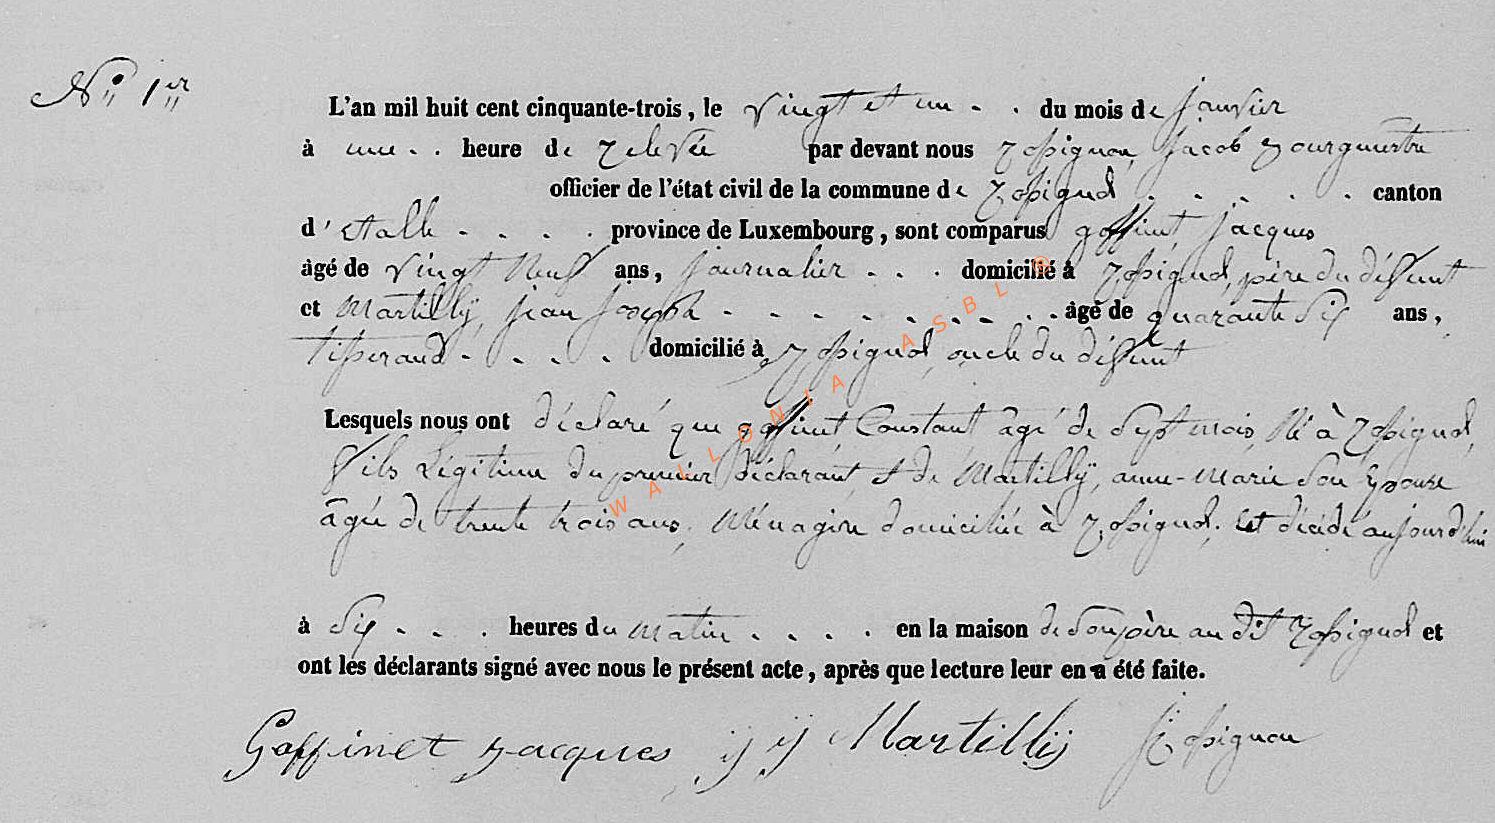 N° 1er
L'an mil huit cent cinquante-trois, le vingt et un - . du mois de janvier
à une - . heure de relevée par devant nous Rossignon, Jacob Bourgmestre
officier de l'état civil de la commune de Rossignol . - . . . canton
d'Etalle - . . . province de Luxembourg, sont comparus goffinet jacques
âgé de vingt Neuf ans, journalier - . . domicilié à Rossignol, père du défunt
et Martilly, jean joseph - . - . - . - . . âgé de quarante Six ans,
tisserand - . . . domicilié à Rossignol, oncle du défunt
Lesquels nous ont déclaré que goffinet Constant âgé de Sept mois, Né à Rossignol,
fils Légitime du premier déclarant, et de Martilly, anne-Marie Son Epouse
âgée de trente trois ans, Ménagère domiciliée à Rossignol, Est décédé aujourd'hui
à Six - . . heures du matin . . . . en la maison de Son père au dit Rossignol et
ont les déclarants signé avec nous le présent acte, après que lecture leur en a été faite.
Goffinet Jacques j j Martilly Rossignon
WALLONIA ASBL ©